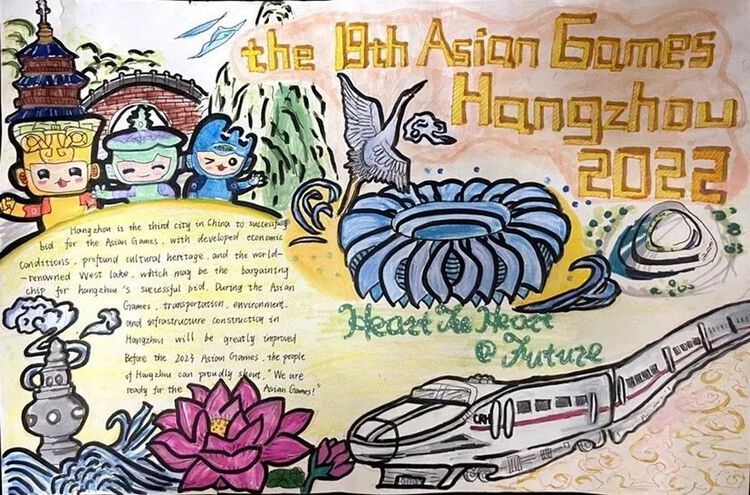 the 19th Asian Games
Hangzhou
2022
Hangzhou is the third city in China to successfully
bid for the Asian Games, with developed economic
conditions, profound cultural heritage, and the world-
-renowned West Lake, which may be the bargaining
chip for hangzhou's successful bid. During the Asian
Games, transportation, environment,
and infrastructure construction in
Hangzhou will be greatly improved
Before the 2023 Asian Games, the people
of Hangzhou can proudly shout, "We are
ready for the Asian Games!"
Heart To Heart
@ Future
CRH